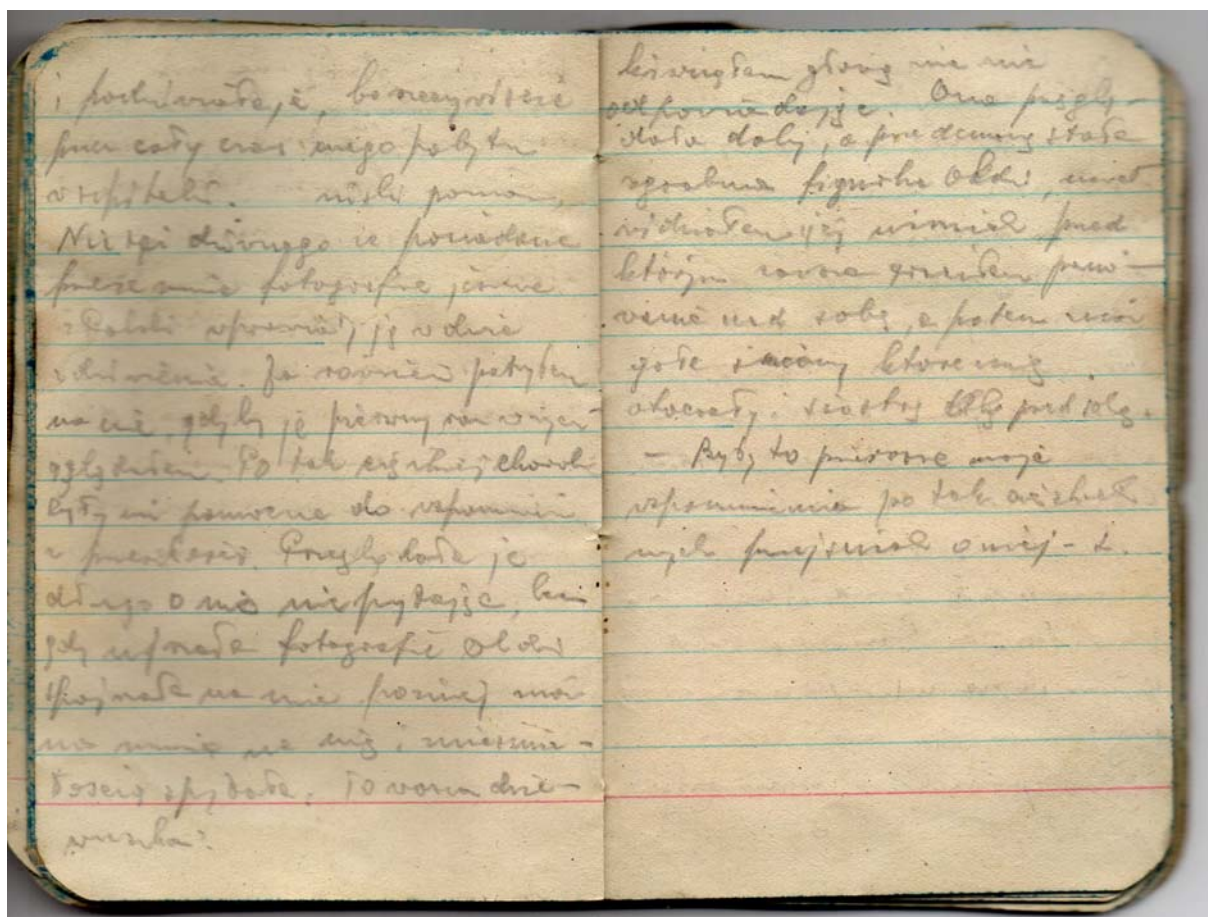 i podziwiała je, bo rzeczywiście
przez cały czas mego pobytu
w szpitalu.
Nic dziwnego że posiadane
przeze mnie fotografie jeszcze
z Polski wprawiały ją w
zdziwienie. Ja również patrzyłem
na nie, gdyby je pierwszy raz w życiu
oglądałem. Po tak ciężkiej chorobie
były mi pomocne do wspomnień
z przeszłości. Przeglądała je
długo o nic nie pytając, lecz
gdy ujrzała fotografię
spojrzała na nie później
na mnie na nią i nieśmia-
łością spytała. To wasza dzie-
wuszka?
kiwnąłem głową nic nie
odpowiadając. Ona przeglą-
dała dalej, a przede mną stała
zgrabna figurka
widziałem jej uśmiech przed
którym zawsze traciłem pano-
wanie nad sobą, a potem
gołe ściany które mnie
otaczały i siostrę przed sobą.
- Były to pierwsze moje
wspomnienia po tak
nych przejściach o niej -